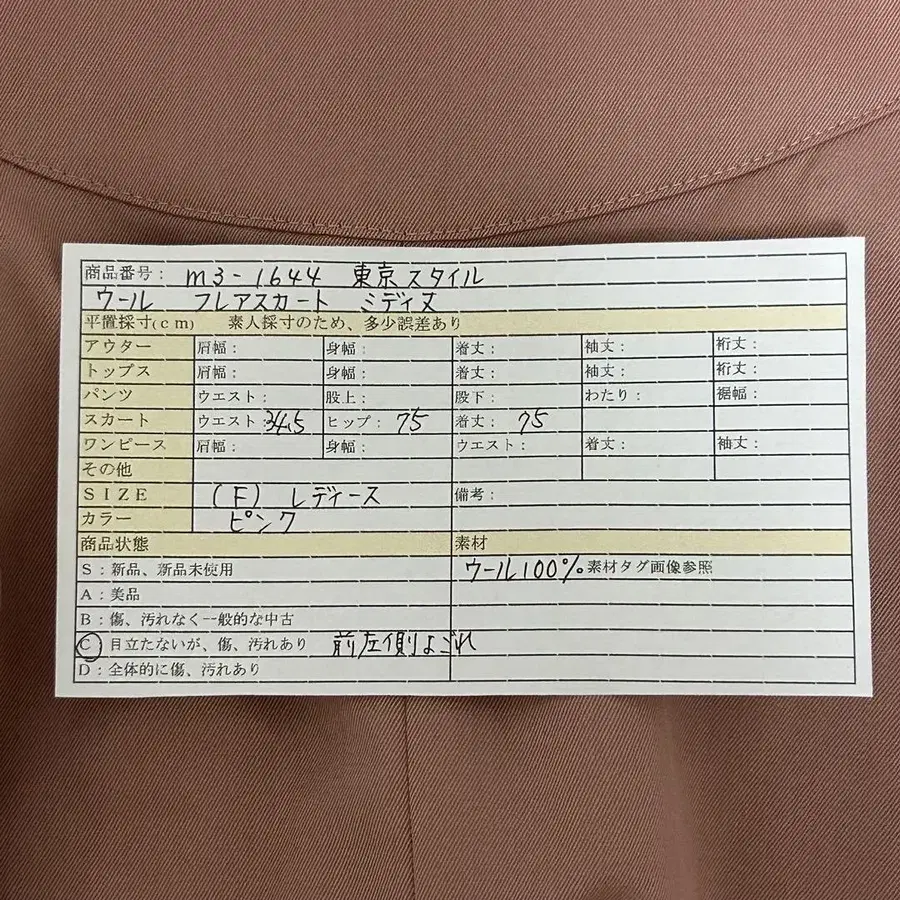 商品番号： m3-1644 東京スタイル
ウール フレアスカート ミディ丈
平置採寸(cm) 素人採寸のため、多少誤差あり
アウター 肩幅： 身幅： 着丈： 袖丈： 裄丈：
トップス 肩幅： 身幅： 着丈： 袖丈： 裄丈：
パンツ ウエスト： 股上： 股下： わたり： 裾幅：
スカート ウエスト：34.5 ヒップ：75 着丈：75
ワンピース 肩幅： 身幅： ウエスト： 着丈： 袖丈：
その他
SIZE (F) レディース 備考：
カラー ピンク
商品状態 素材
S：新品、新品未使用 ウール100%。素材タグ画像参照
A：美品
B：傷、汚れなく一般的な中古
C：目立たないが、傷、汚れあり 前左側よごれ
D：全体的に傷、汚れあり